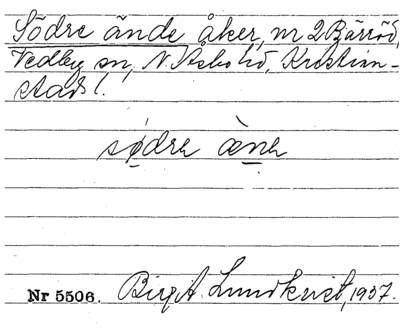 Södre ände åker, nr 2 Bärröd,
Vedby sn, N. Åsbo hd, Kristian-
stads l.
södrə ànə
Nr 5506. Birgit Lundkvist, 1937.